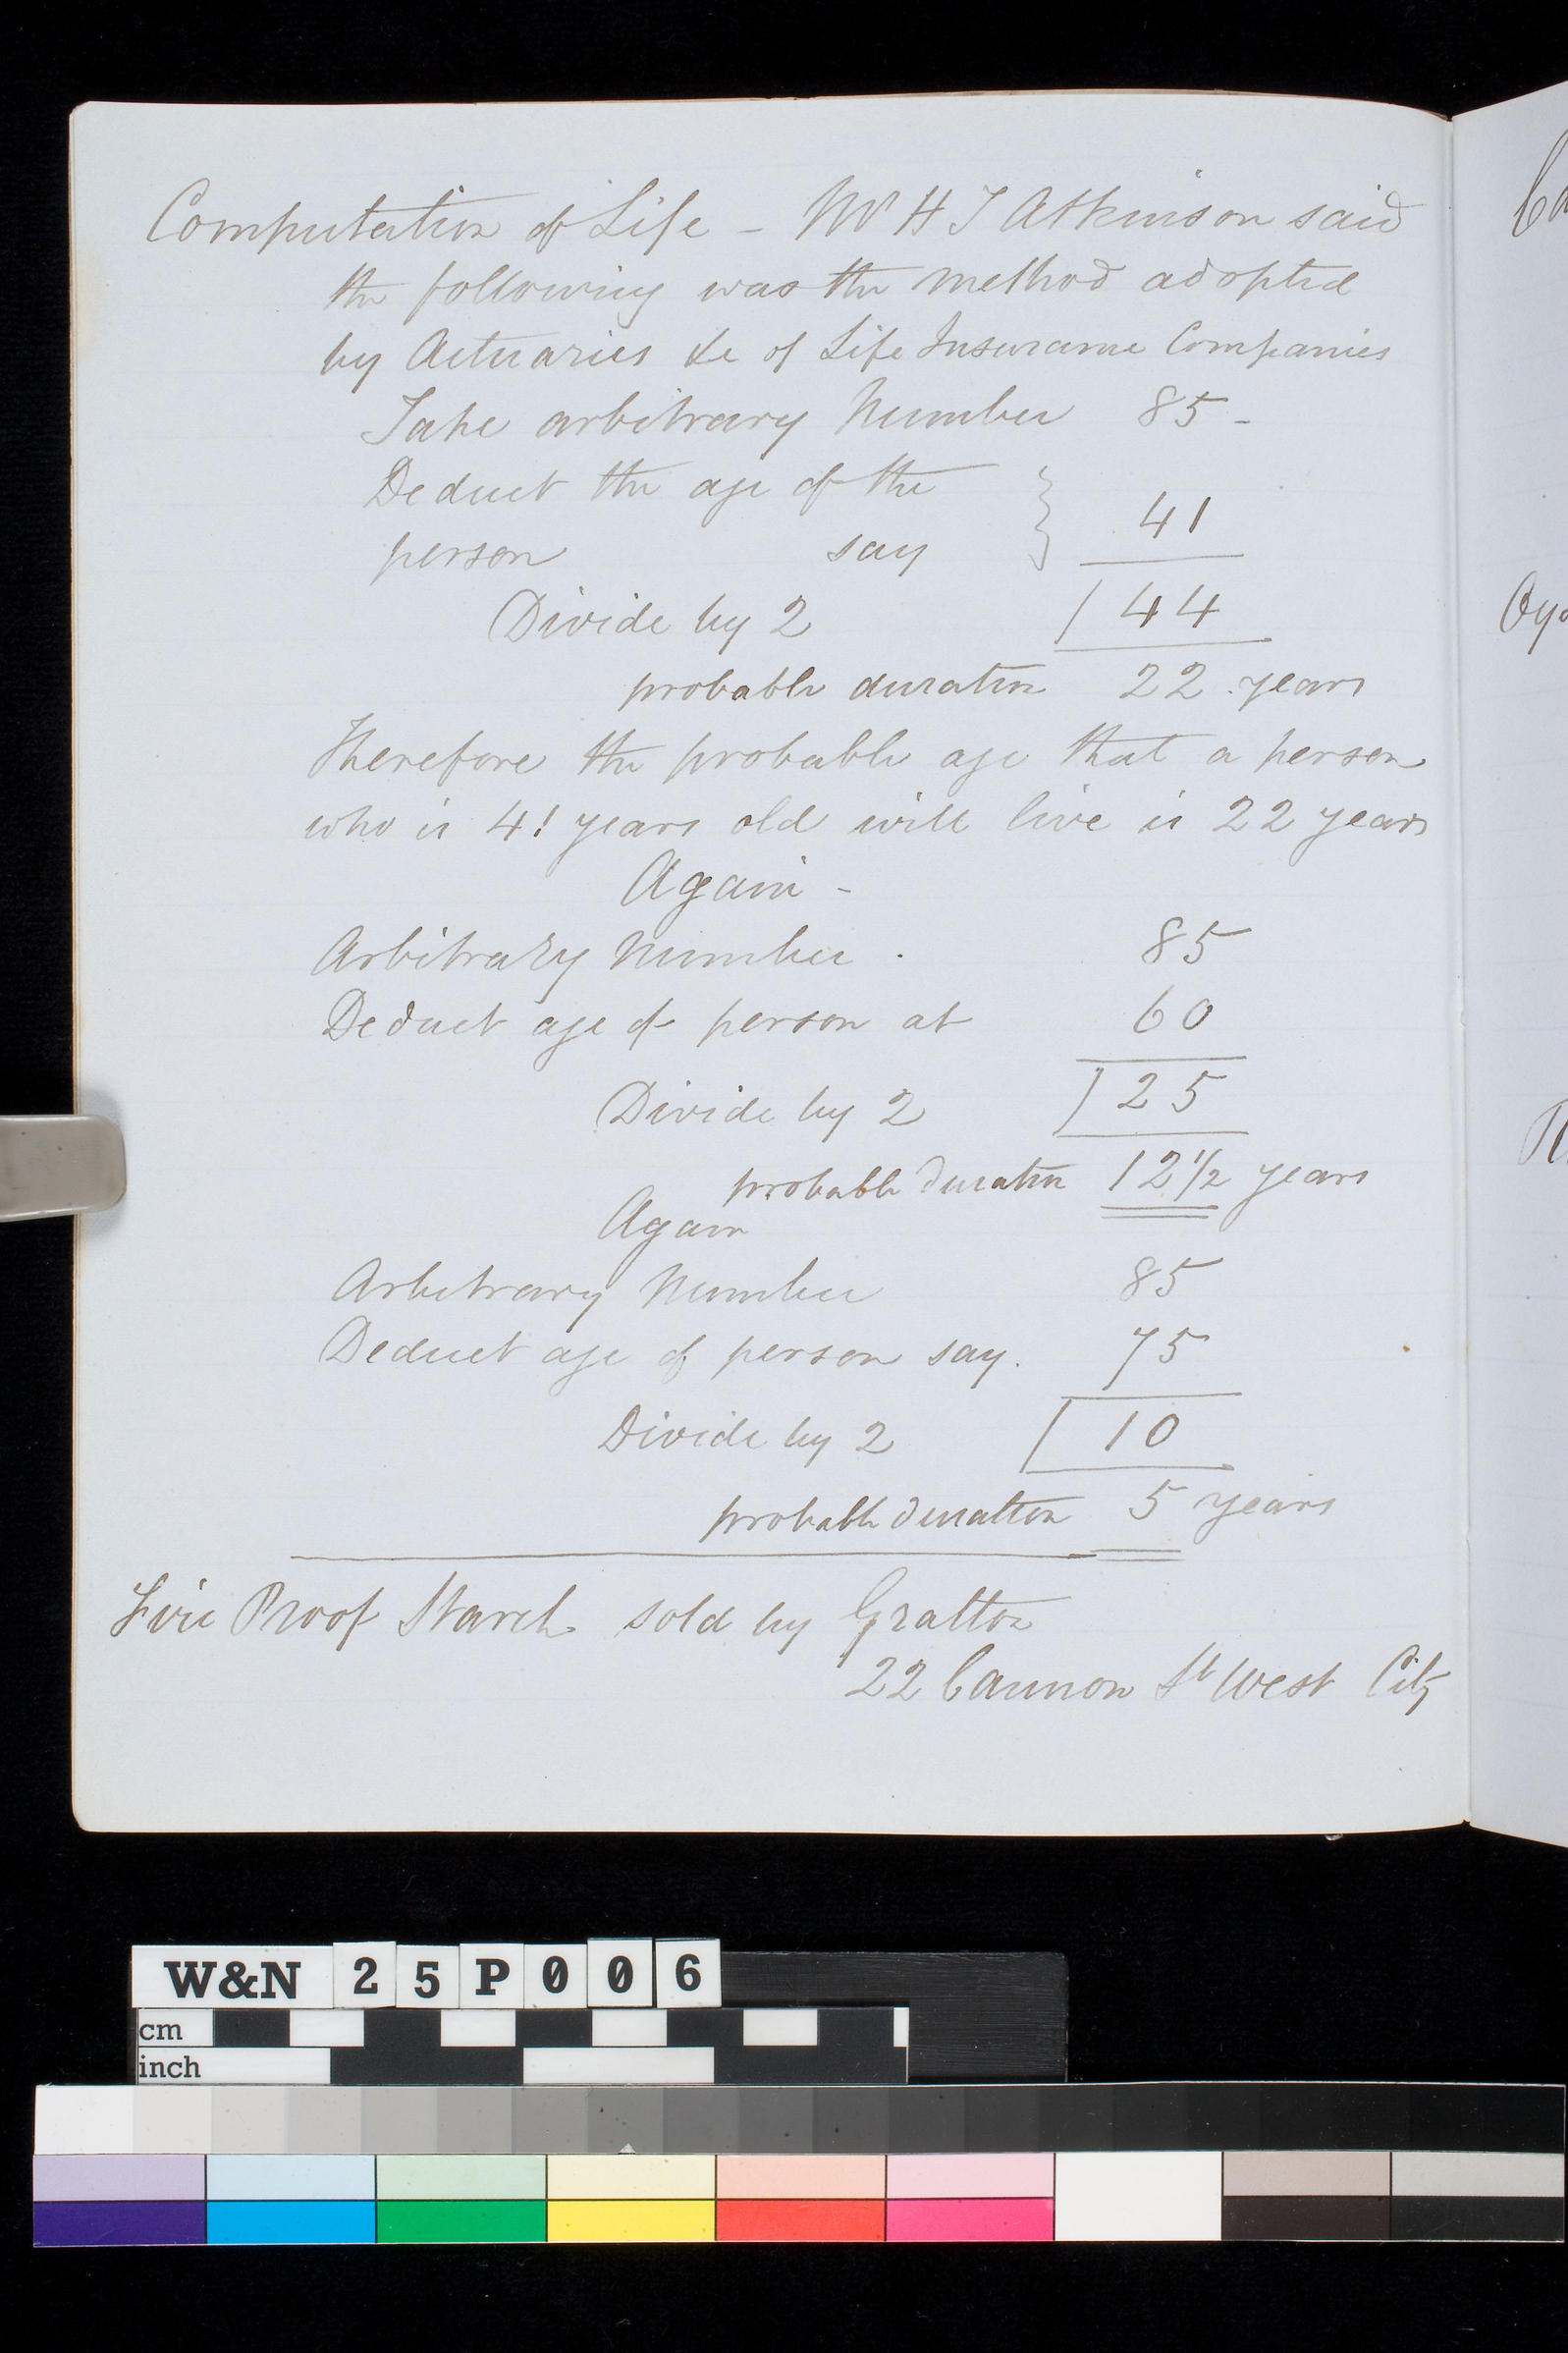 Computation of Life - Mr H J Atkinson said
the following was the method adopted
by Actuaries &c of Life Insurance Companies
Take arbitrary Number 85 -
Deduct the age of the
person say } 41
Divide by 2 | 44
probable duration 22 years
Therefore the probable age that a person
who is 41 years old will live is 22 years
Again -
Arbitrary Number . 85
Deduct age of person at 60
Divide by 2 | 25
probable duration 12 1/2 years
Again
Arbitrary Number 85
Deduct age of person say. 75
Divide by 2 | 10
probable duration 5 years
Fire Proof Starch sold by Gratton
22 Cannon St West City
W&N 25P006
cm
inch